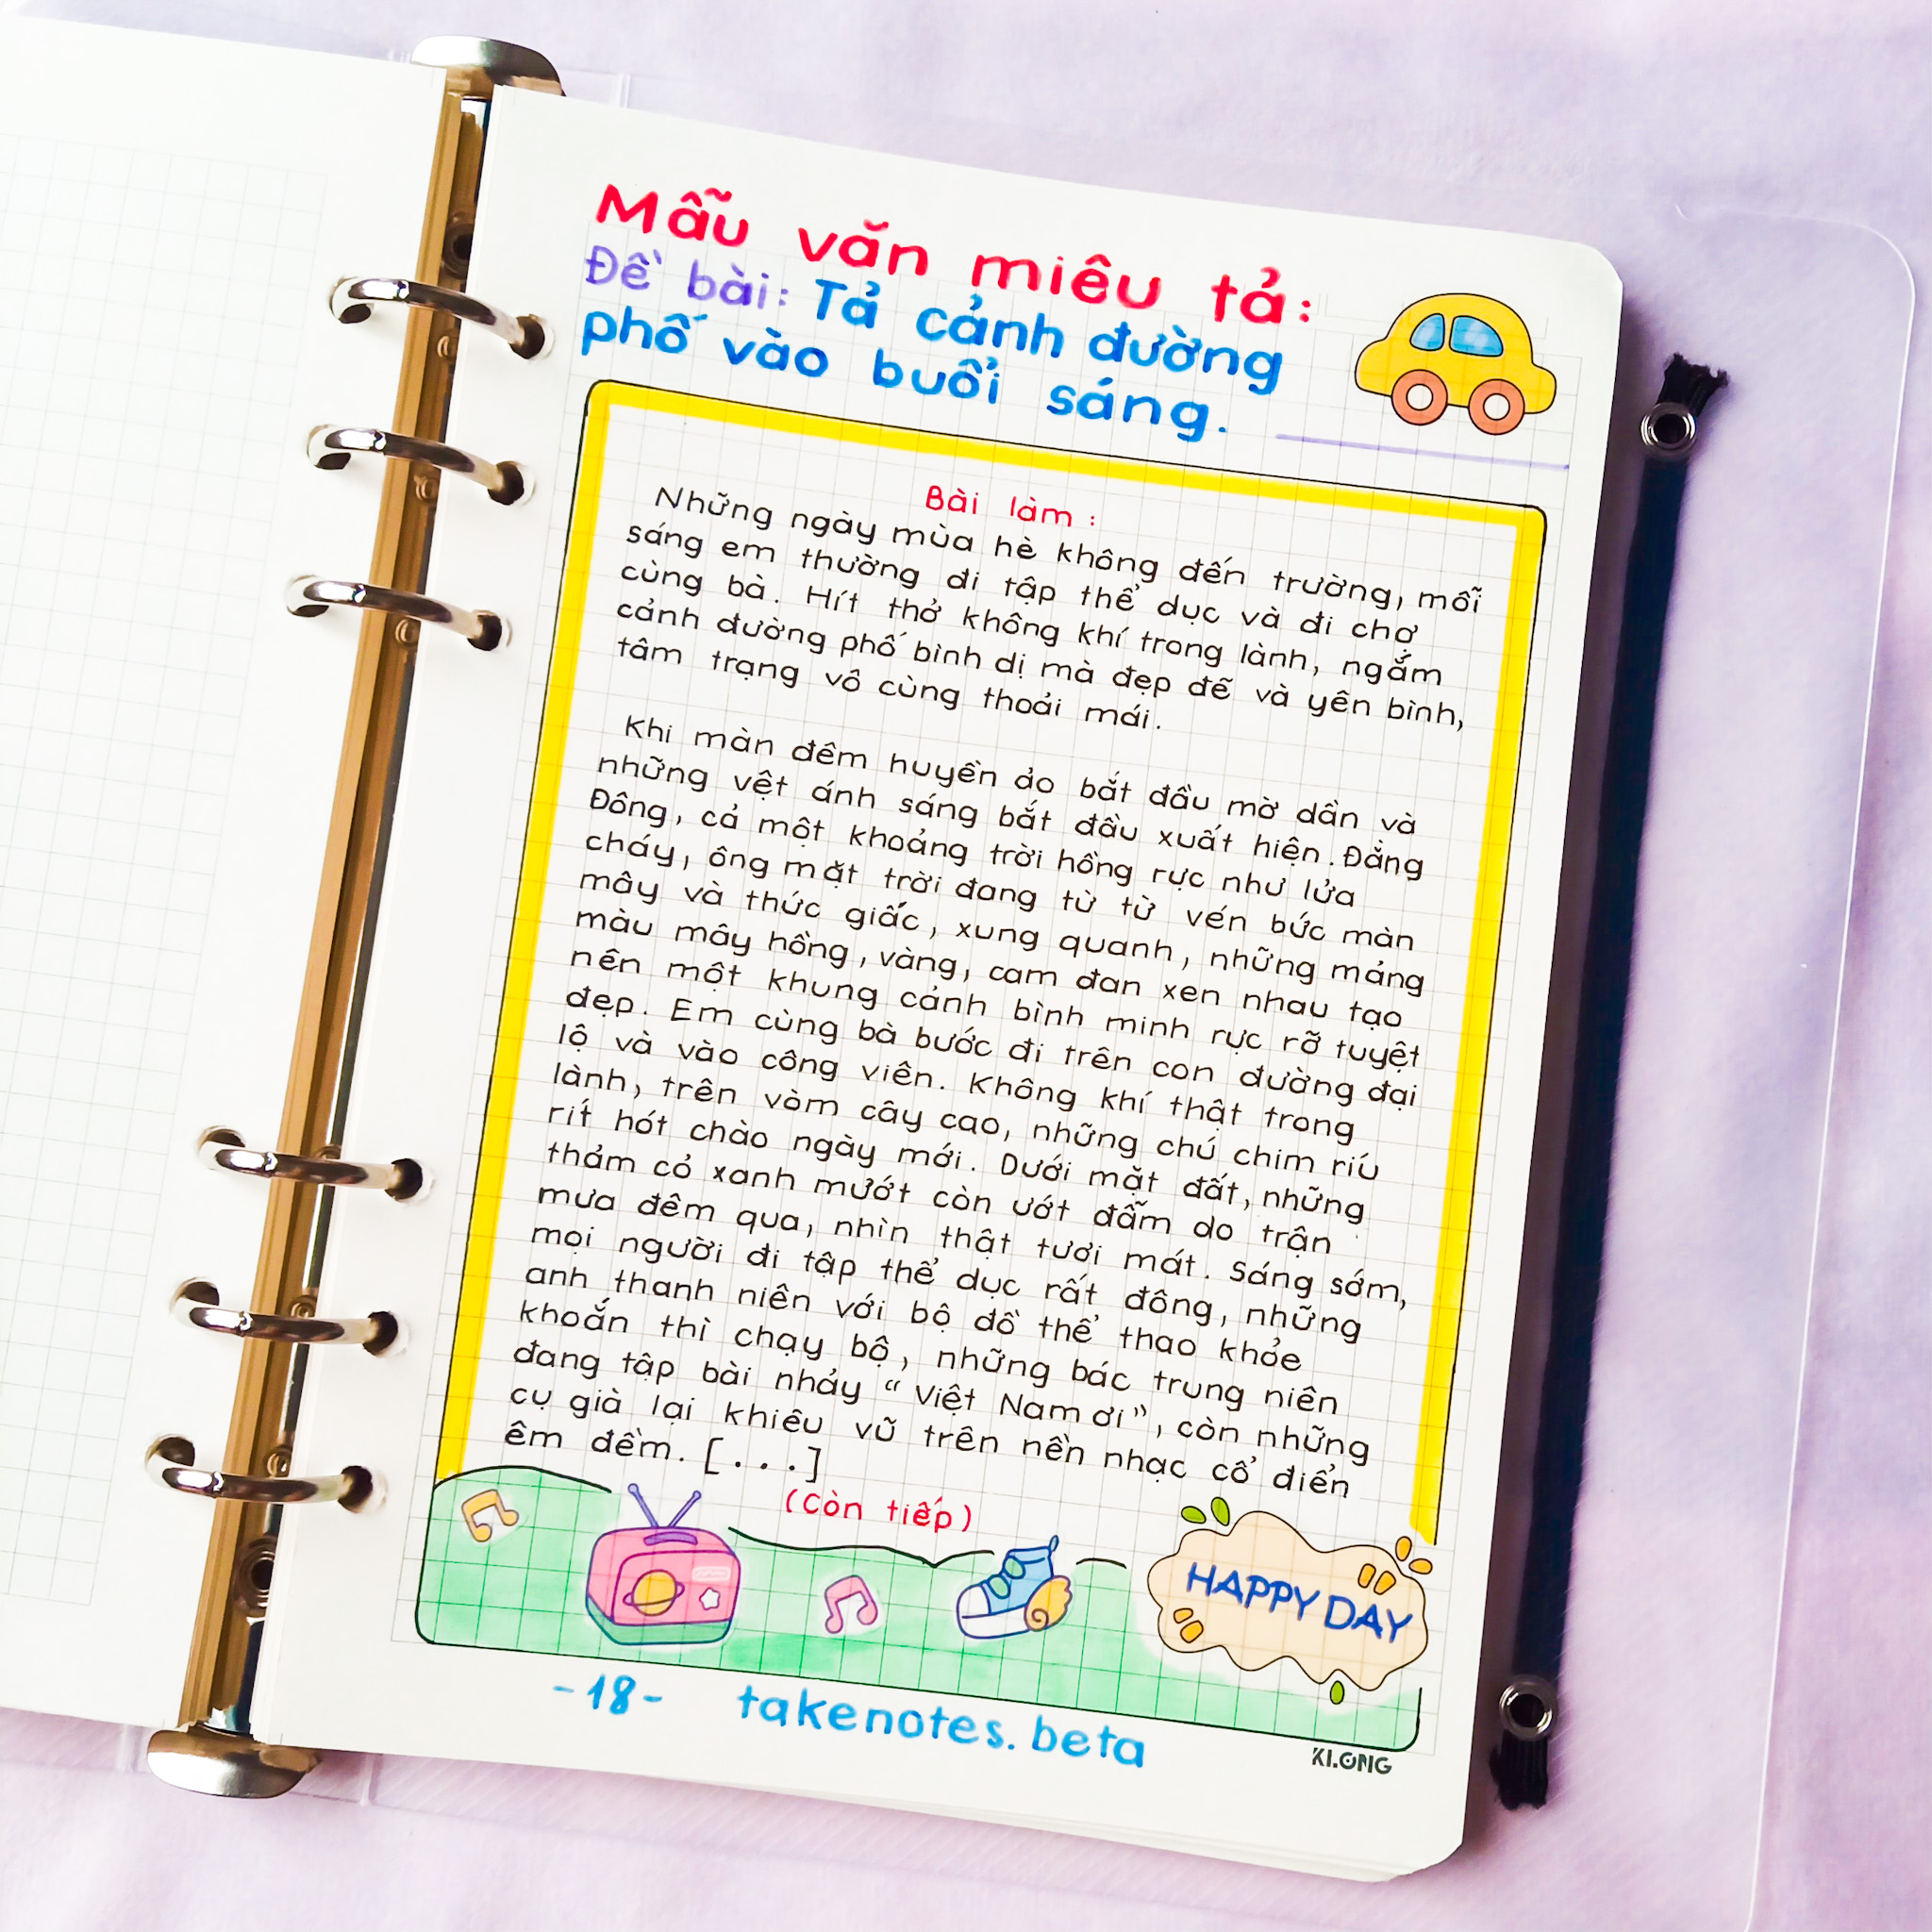 Mẫu văn miêu tả:
Đề bài: Tả cảnh đường
phố vào buổi sáng.
Bài làm:
Những ngày mùa hè không đến trường, mỗi
sáng em thường đi tập thể dục và đi chợ
cùng bà. Hít thở không khí trong lành, ngắm
cảnh đường phố bình dị mà đẹp đẽ và yên bình,
tâm trạng vô cùng thoải mái.
Khi màn đêm huyền ảo bắt đầu mờ dần và
những vệt ánh sáng bắt đầu xuất hiện. Đằng
Đông, cả một khoảng trời hồng rực như lửa
cháy, ông mặt trời đang từ từ vén bức màn
mây và thức giấc, xung quanh, những mảng
màu mây hồng, vàng, cam đan xen nhau tạo
nên một khung cảnh bình minh rực rỡ tuyệt
đẹp. Em cùng bà bước đi trên con đường đại
lộ và vào công viên. Không khí thật trong
lành, trên vòm cây cao, những chú chim ríu
rít hót chào ngày mới. Dưới mặt đất, những
thảm cỏ xanh mướt còn ướt đẫm do trận
mưa đêm qua, nhìn thật tươi mát. Sáng sớm,
mọi người đi tập thể dục rất đông, những
anh thanh niên với bộ đồ thể thao khỏe
khoắn thì chạy bộ, những bác trung niên
đang tập bài nhảy "Việt Nam ơi", còn những
cụ già lại khiêu vũ trên nền nhạc cổ điển
êm đềm. [...]
(Còn tiếp)
HAPPY DAY
-18- takenotes.beta
KI.ONG